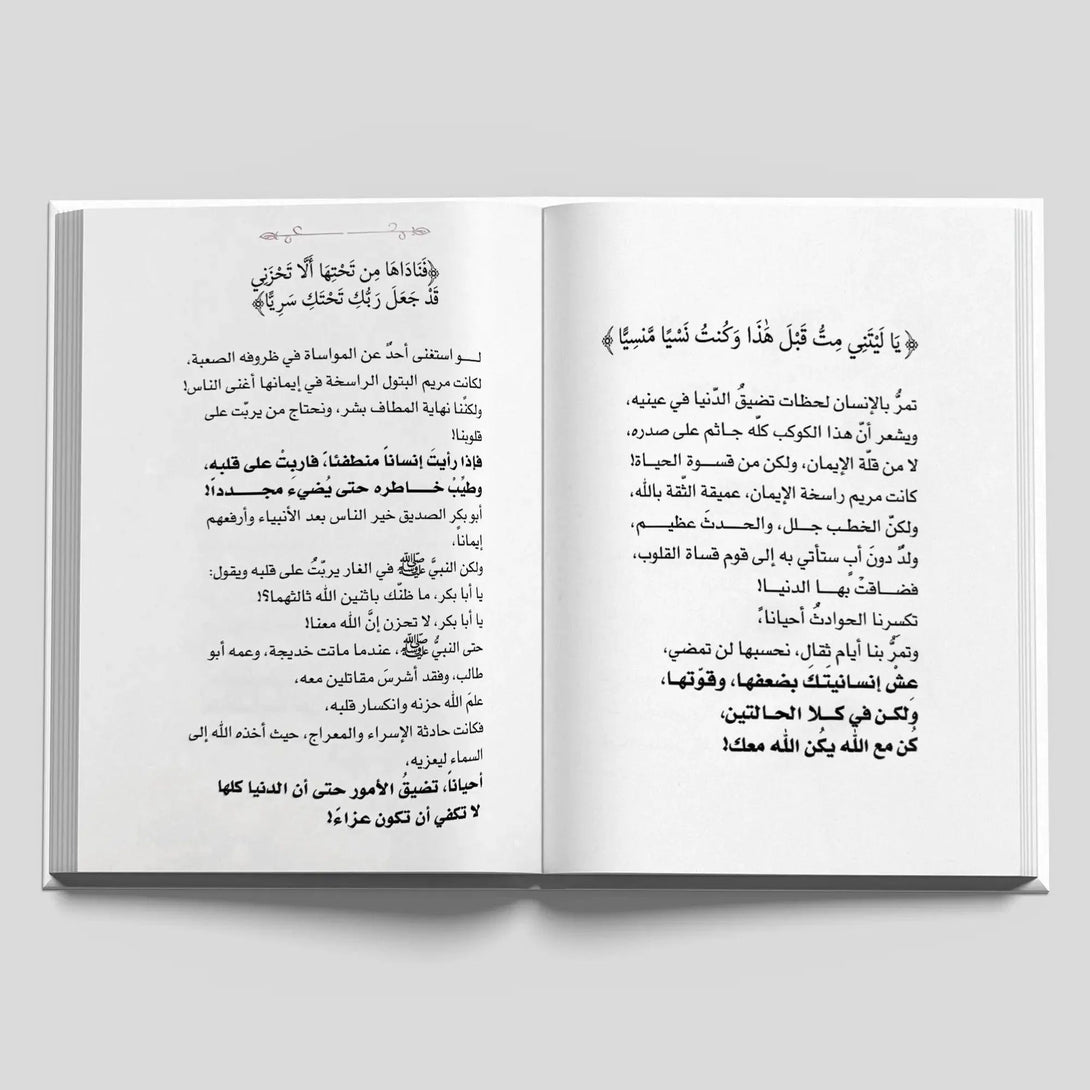 ﴿يَا لَيْتَنِي مِتُّ قَبْلَ هَٰذَا وَكُنتُ نَسْيًا مَّنسِيًّا﴾
تمرُّ بالإنسان لحظات تضيقُ الدّنيا في عينيه،
ويشعر أنّ هذا الكوكب كلّه جاثم على صدره،
لا من قلّة الإيمان، ولكن من قســوة الحيـاة!
كانت مريم راسخة الإيمان، عميقة الثّقة بالله،
ولكنّ الخطب جـلل، والحـدثَ عظيـم،
ولدٌ دونَ أبٍ ستأتي به إلى قوم قساة القلوب،
فضـاقتْ بهـا الدنيـا!
تكسرنا الحوادثُ أحياناً،
وتمرُّ بنا أيام ثقال، نحسبها لن تمضي،
عِشْ إنسانيتَكَ بضعفها، وقوّتهـا،
ولكـن في كـلا الحـالتين،
كُن مع الله يكُن الله معك!
﴿فَنَادَاهَا مِن تَحْتِهَا أَلَّا تَحْزَنِي
قَدْ جَعَلَ رَبُّكِ تَحْتَكِ سَرِيًّا﴾
لــو استغنى أحدٌ عن المواساة في ظروفه الصعبة،
لكانت مريم البتول الراسخة في إيمانها أغنى الناس!
ولكنّنا نهاية المطاف بشر، ونحتاج من يربّت على
قلوبنا!
فإذا رأيتَ إنساناً منطفئاً، فاربِتْ على قلبه،
وطيّبْ خـــاطره حتى يُضيء مجـــدداً!
أبو بكر الصديق خير الناس بعد الأنبياء وأرفعهم
إيماناً،
ولكن النبيَّ ﷺ في الغار يربّتُ على قلبه ويقول:
يا أبا بكر، ما ظنّك باثنين الله ثالثهما؟!
يا أبا بكر، لا تحزن إنَّ الله معنا!
حتى النبيُّ ﷺ، عندما ماتت خديجة، وعمه أبو
طالب، وفقد أشرسَ مقاتلين معه،
علمَ الله حزنه وانكسار قلبه،
فكانت حادثة الإسراء والمعراج، حيث أخذه الله إلى
السماء ليعزيه،
أحياناً، تضيقُ الأمور حتى أن الدنيا كلها
لا تكفي أن تكون عزاءً!